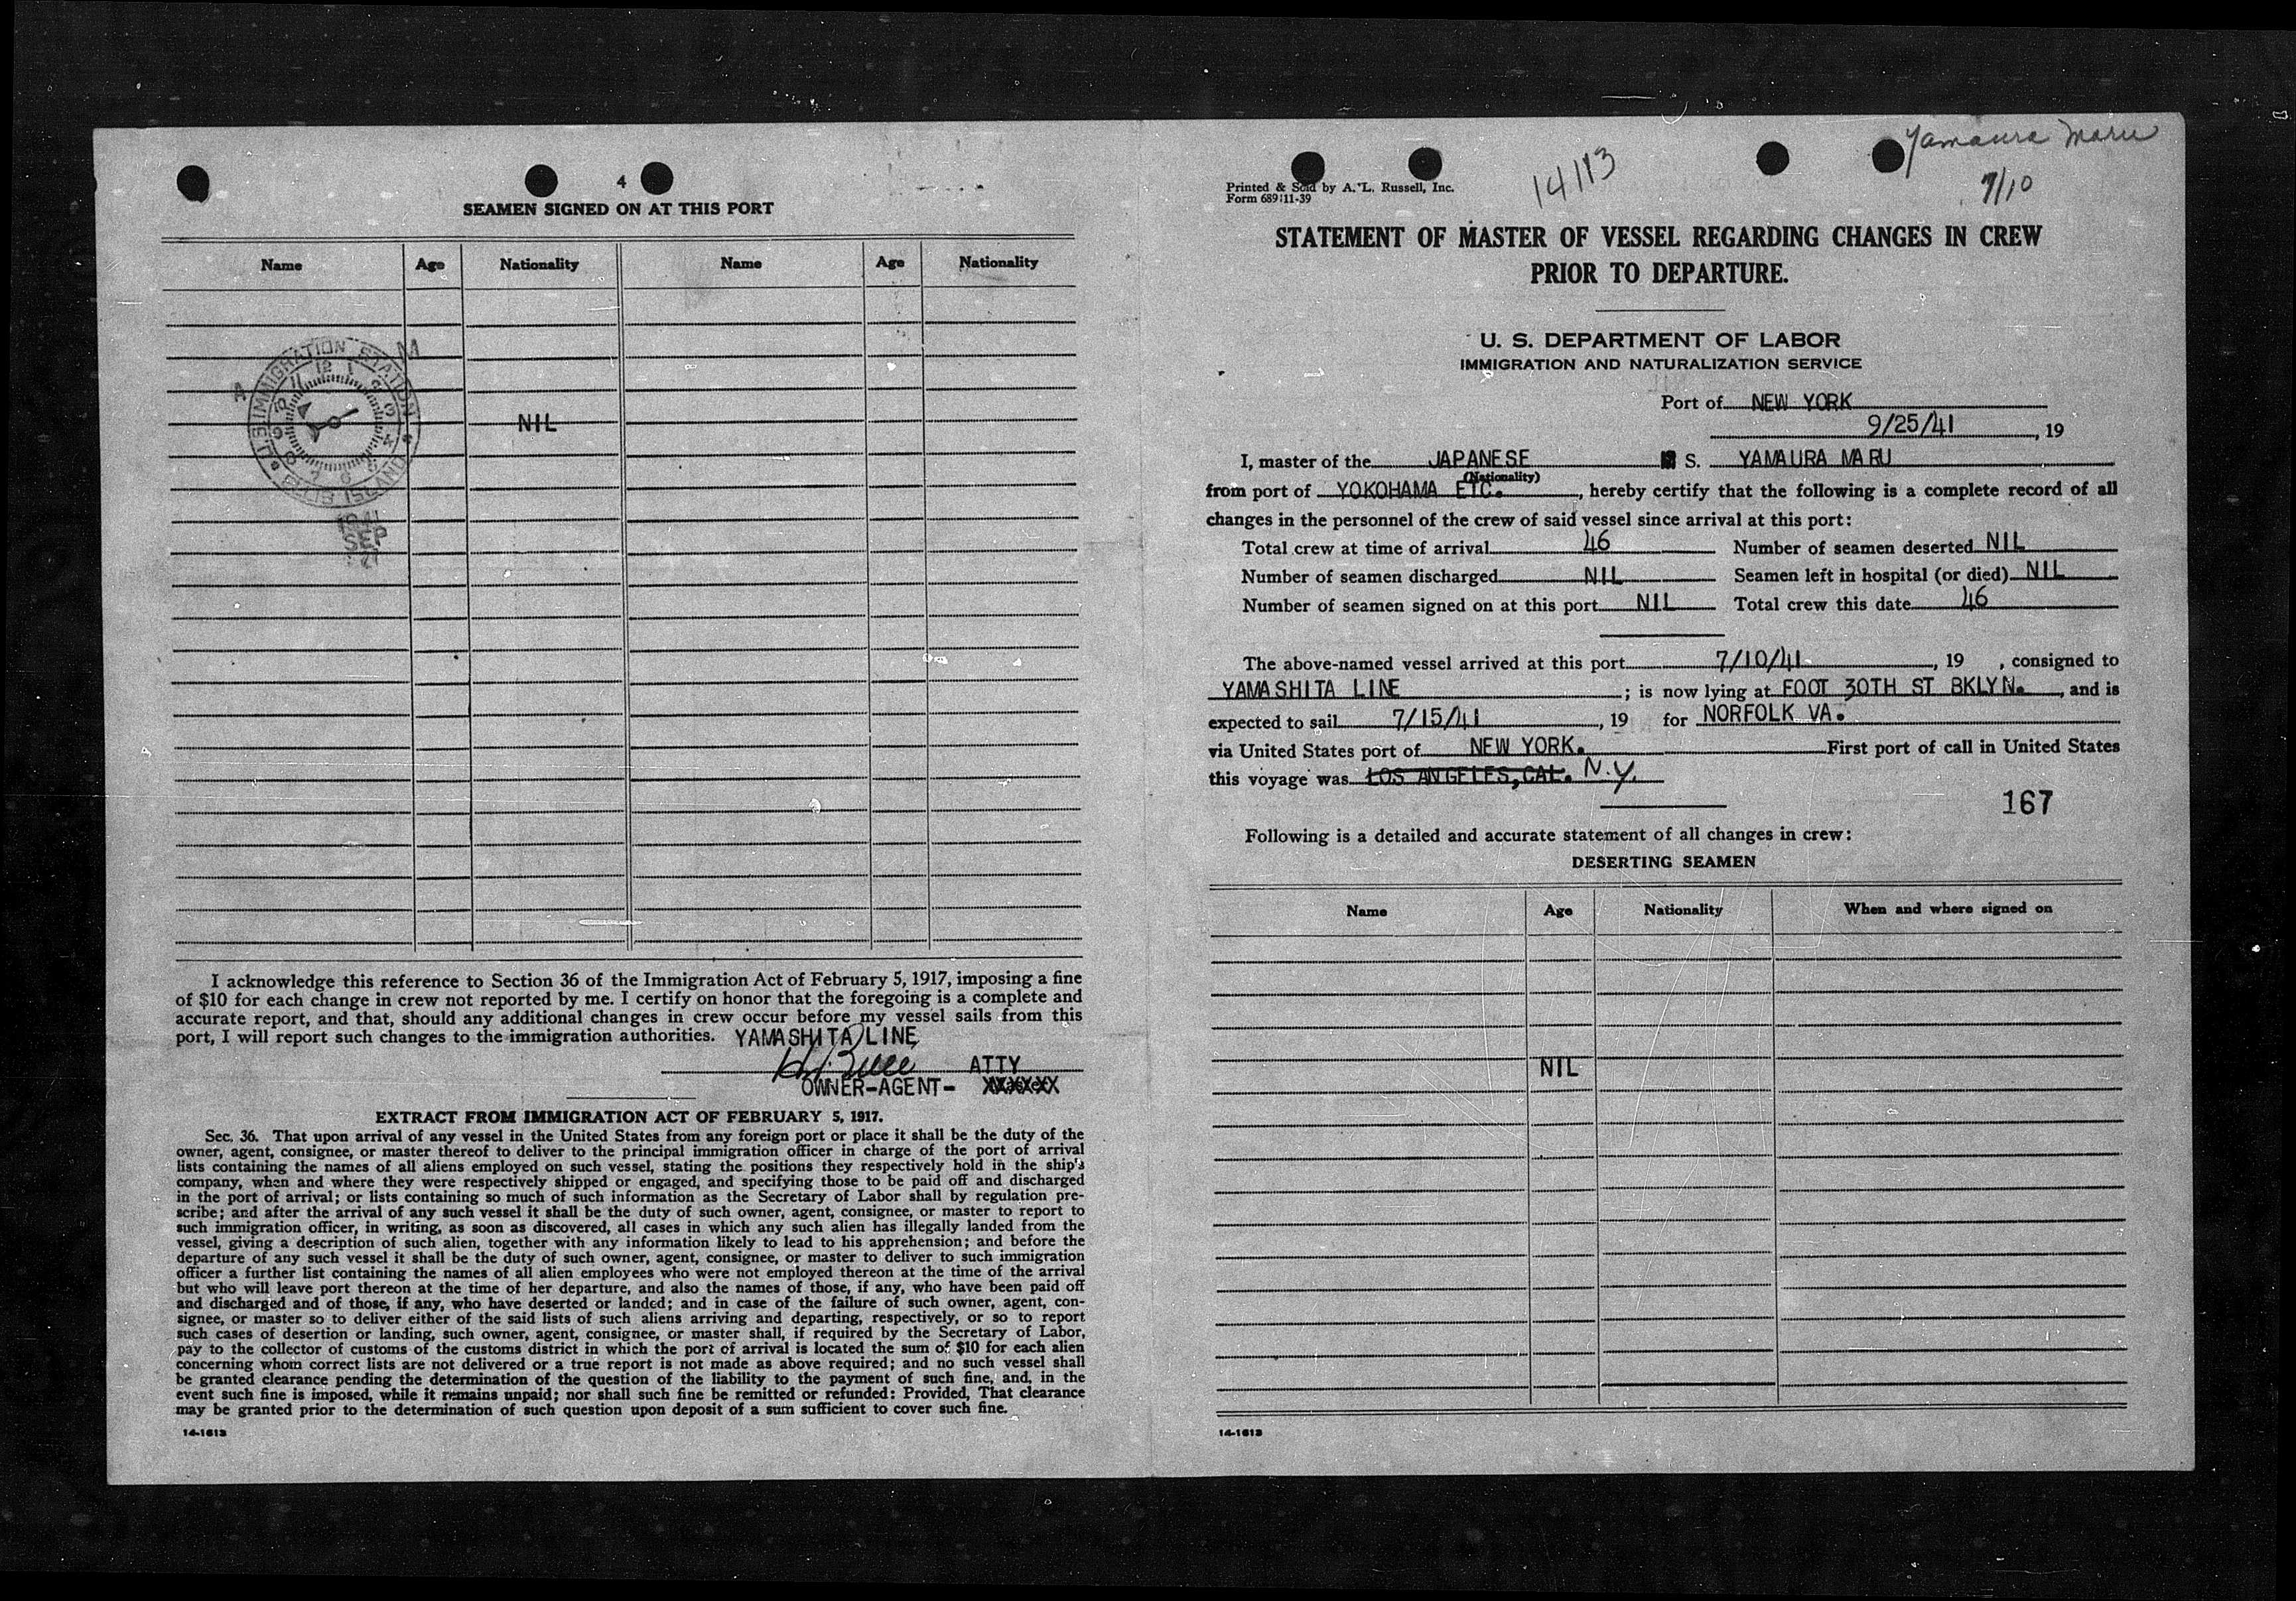 4
SEAMEN SIGNED ON AT THIS PORT
Name Age Nationality Name Age Nationality
NIL
U.S. IMMIGRATION STATION
ELLIS ISLAND
A M
12 1 2 3 4 5 6 7 8 9 10 11
1941
SEP
I acknowledge this reference to Section 36 of the Immigration Act of February 5, 1917, imposing a fine
of $10 for each change in crew not reported by me. I certify on honor that the foregoing is a complete and
accurate report, and that, should any additional changes in crew occur before my vessel sails from this
port, I will report such changes to the immigration authorities. YAMASHITA LINE
ATTY
OWNER-AGENT- XXXXXX
EXTRACT FROM IMMIGRATION ACT OF FEBRUARY 5, 1917.
Sec. 36. That upon arrival of any vessel in the United States from any foreign port or place it shall be the duty of the
owner, agent, consignee, or master thereof to deliver to the principal immigration officer in charge of the port of arrival
lists containing the names of all aliens employed on such vessel, stating the positions they respectively hold in the ship's
company, when and where they were respectively shipped or engaged, and specifying those to be paid off and discharged
in the port of arrival; or lists containing so much of such information as the Secretary of Labor shall by regulation pre-
scribe; and after the arrival of any such vessel it shall be the duty of such owner, agent, consignee, or master to report to
such immigration officer, in writing, as soon as discovered, all cases in which any such alien has illegally landed from the
vessel, giving a description of such alien, together with any information likely to lead to his apprehension; and before the
departure of any such vessel it shall be the duty of such owner, agent, consignee, or master to deliver to such immigration
officer a further list containing the names of all alien employees who were not employed thereon at the time of the arrival
but who will leave port thereon at the time of her departure, and also the names of those, if any, who have been paid off
and discharged and of those, if any, who have deserted or landed; and in case of the failure of such owner, agent, con-
signee, or master so to deliver either of the said lists of such aliens arriving and departing, respectively, or so to report
such cases of desertion or landing, such owner, agent, consignee, or master shall, if required by the Secretary of Labor,
pay to the collector of customs of the customs district in which the port of arrival is located the sum of $10 for each alien
concerning whom correct lists are not delivered or a true report is not made as above required; and no such vessel shall
be granted clearance pending the determination of the question of the liability to the payment of such fine, and, in the
event such fine is imposed, while it remains unpaid; nor shall such fine be remitted or refunded: Provided, That clearance
may be granted prior to the determination of such question upon deposit of a sum sufficient to cover such fine.
14-1613
Yamaura Maru
7/10
14113
Printed & Sold by A. L. Russell, Inc.
Form 689:11-39
STATEMENT OF MASTER OF VESSEL REGARDING CHANGES IN CREW
PRIOR TO DEPARTURE.
U. S. DEPARTMENT OF LABOR
IMMIGRATION AND NATURALIZATION SERVICE
Port of NEW YORK
9/25/41, 19
I, master of the JAPANESE S. YAMAURA MARU
(Nationality)
from port of YOKOHAMA ETC., hereby certify that the following is a complete record of all
changes in the personnel of the crew of said vessel since arrival at this port:
Total crew at time of arrival 46 Number of seamen deserted NIL
Number of seamen discharged NIL Seamen left in hospital (or died) NIL
Number of seamen signed on at this port NIL Total crew this date 46
The above-named vessel arrived at this port 7/10/41, 19 , consigned to
YAMASHITA LINE ; is now lying at FOOT 30TH ST BKLYN. , and is
expected to sail 7/15/41, 19 for NORFOLK VA.
via United States port of NEW YORK. First port of call in United States
this voyage was LOS ANGELES, CAL. N.Y.
167
Following is a detailed and accurate statement of all changes in crew:
DESERTING SEAMEN
Name Age Nationality When and where signed on
NIL
14-1613